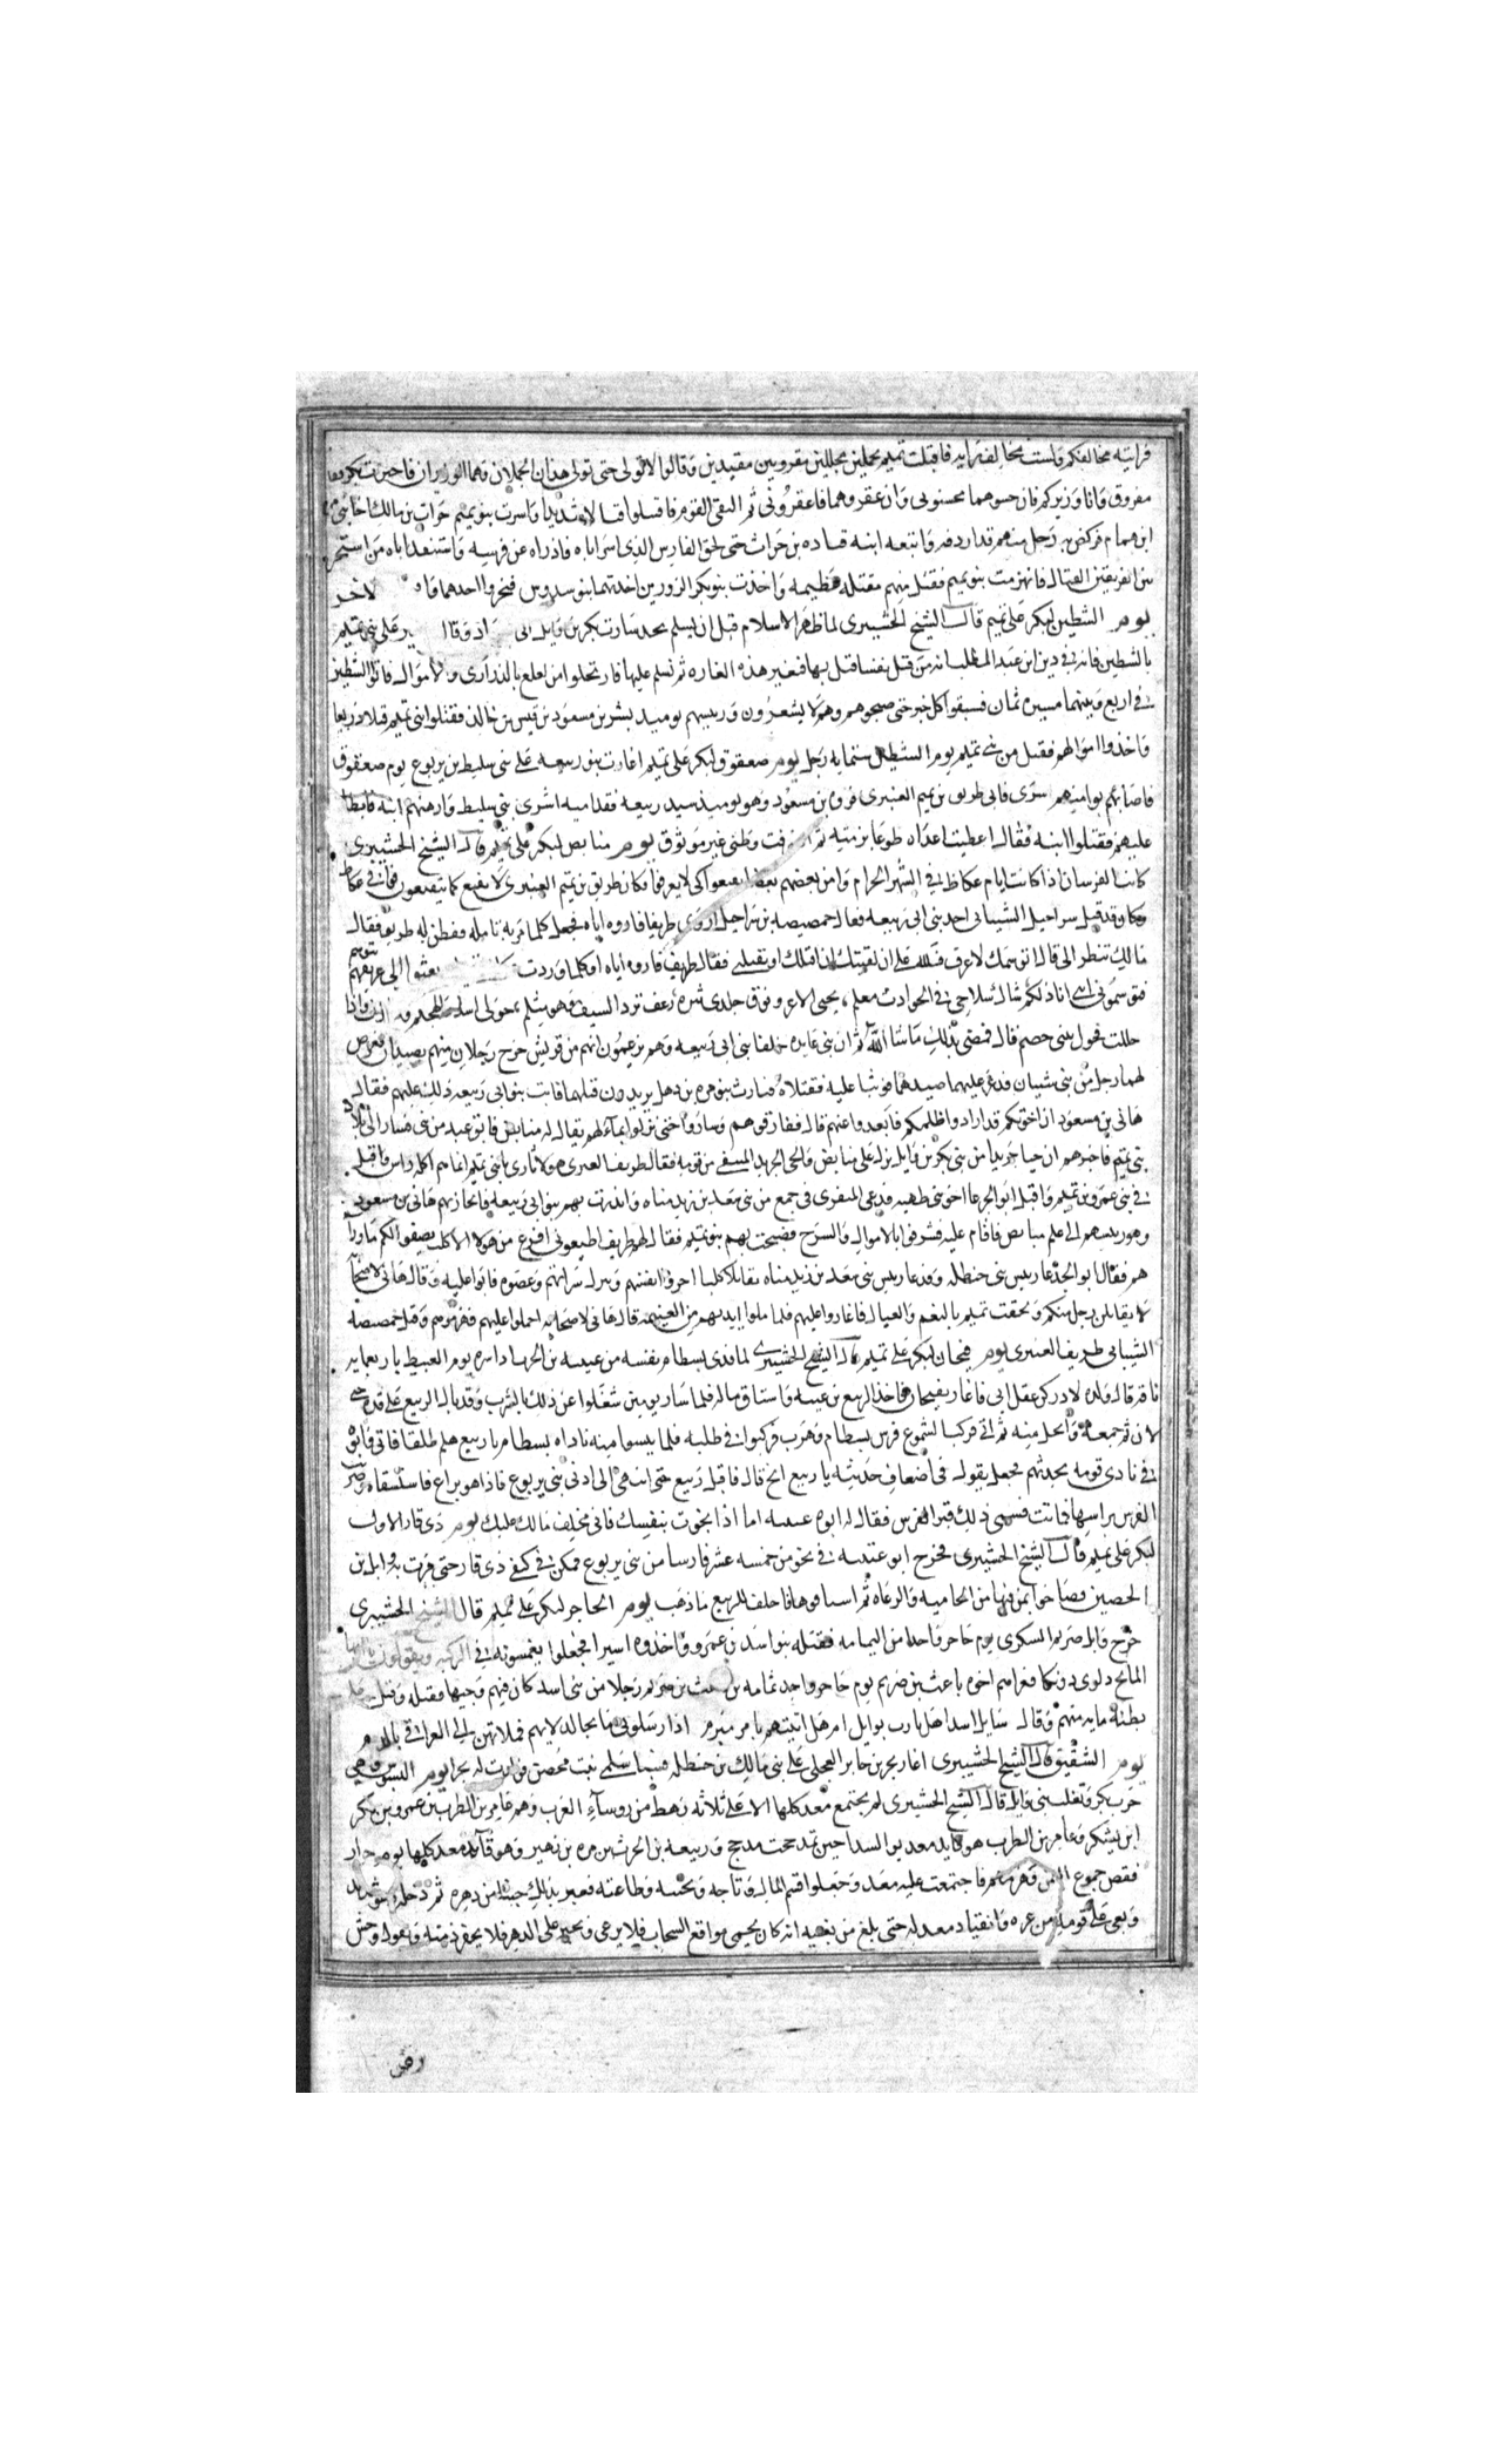 فرايته مخالفكم ولست مخالف رايه فاقبلت تميم بجملين مجللين مقرونين مقيدين وقالوا لا نولي حتى تولي هذان الجملان وهما الزوران فاخبرت بكر بقول
مفروق وانا وزيركم فان حسوهما محسنوني وان عقروهما فاعقروني ثم التقى القوم فاقتلوا قتالا شديدا واسرت بنو تميم حراث بن مالك اخا بني مرة
ابن همام فركض به رجل منهم قد اردفه واتبعه ابنه قتاده بن حراث حتى لحق الفارس الذي اسر اباه فاذراه عن فرسه واستنقذ اباه من استحر
بين الفريقين القتال فانهزمت بنو تميم فقتل منهم مقتله عظيمه واخذت بنو بكر الزورين اخذتهما بنو سدوس فنحروا احدهما لاخر
يوم الشطين لبكر على تميم قال الشيخ الحشيبرى لما ظهر الاسلام قبل ان يسلم نجد سارت بكر بن وايل الى على بني تميم
بالشطين فانه في دين ابن عبد المطلب انه من قتل نفسا قتل بها فنغير هذه الغاره ثم نسلم عليها فارتحلوا من لعلع بالذرارى والاموال فاتوا الشطين
في اربع وبينهما مسيره ثمان فسبقوا كل خبر حتى صبحوهم وهم لا يشعرون ورييسهم يوميد بشر بن مسعود بن قيس بن خالد فقتلوا بني تميم قتلا ذريعا
واخذوا اموالهم فقتل من بني تميم يوم الشطين ستمايه رجل يوم صعقوق لبكر على تميم اغارت بنو ربيعه على بني سليط بن يربوع يوم صعقوق
فاصابهم بوا منهم سرى فاتى طريف بن تميم العنبرى فروه بن مسعود وهو يوميذ سيد ربيعه ففدا منه اسرى بني سليط وارهنهم ابنه فابطا
عليهم فقتلوا ابنه فقال اعطيت اعداه طوعا برمته ثم وظني غير موثوق يوم منابض لبكر على تميم قال الشيخ الحشيبرى
كانت الفرسان اذا كانت ايام عكاظ في الشهر الحرام وامن بعضهم بعضا تقنعوا كي لا يعرفوا وكان طريف بن تميم العنبرى لا يتقنع كما يتقنعون فوافى عكاظ
وكان وقد قتل شراحيل الشيباني احد بني ابي ربيعه فقال حمصيصه بن شراحيل اروني طريفا فاروه اياه فجعل كلما مر به تامله ففطن له طريف فقال
مالك تنظر الى قال اتوسمك لاعرفك فلله على ان لقيتك ان اقتلك او تقتلني فقال طريف اوكلما وردت بعثوا الي عريفهم يتوسم
فتوسموني انني انا ذلكم شاك سلاحي في الحوادث معلم تحتي الاغر وفوق جلدى نثره زعف ترد السيف وهو مثلم حولي اسيد واذا
حللت فحول بيتي خضم قال فمضى بذلك ما شا الله ثم ان بني عايده حلفا بني ابي ربيعه وهم يزعمون انهم من قريش خرج رجلان منهم يصيدان فعرض
لهما رجل من بني شيبان فذعر عليهما صيدهما فوثبا عليه فقتلاه فثارت بنو مره بن ذهل يريدون قتلهما فابت بنو ابي ربيعه ذلك عليهم فقال
هاني بن مسعود ان اخوتكم قد ارادوا ظلمكم فابعدوا عنهم قال ففارقوهم وساروا حتى نزلوا بماء لهم يقال له منابض فابق عبد من بني فسار الى بلاد
بني تميم فاخبرهم ان حيا جريدا من بني بكر بن وايل نزلا على منابض والحي الجريد المنتفي من قومه فقال طريف العنبرى هولا ثارى يا بني تميم انما هم اكله راس واقبل
في بني عمرو بن تميم واقبل ابو الجدعا اخو بني طهيه فدعى المنقرى في جمع من بني سعد بن زيد مناه وانذرت بهم بنو ابي ربيعه فانحاز بهم هاني بن مسعود
وهو رييسهم الى علم منابض فاقام عليه فشرفوا بالاموال والسرح فصبحت بهم بنو تميم فقال لهم طريف اطيعوني افرغ من هولا الاكلب يصفوا لكم ما وراء
هم فقال ابو الجدعا رييس بني حنظله وفدعا رييس بني سعد بن زيد مناه نقاتل اكلبا احرزوا انفسهم ونترك شراتهم وعصوه فابوا عليه وقال هاني لاصحابه
لا يقاتلن رجل منكم ولحقت تميم بالنعم والعيال فاغاروا عليهم فلما ملوا ايديهم من الغنيمه قال هاني لاصحابه احملوا عليهم فهزموهم وقتل حمصيصه
الشيباني طريف العنبرى يوم فيحان لبكر على تميم قال الشيخ الحشيبرى لما فدى بسطام نفسه من عتيبه بن الحرث اذا سره يوم الغبيط باربعمايه
ناقه قال ولده لادركن عقل ابي فاغار بفيحان فاخذ الربيع بن عتيبه واستاق ماله فلما سار يومين شغلوا عن ذلك بالشرب وقد بال الربيع على قده حتى
لان ثم جمعه وانحل منه ثم اتى فركب الشموع فرس بسطام وهرب فركبوا في طلبه فلما ييسوا منه ناداه بسطام يا ربيع هلم طلقا فاتى فابوه
في نادى قومه يحدثهم فجعل يقول في اضعاف حديثه يا ربيع انج قال فاقبل ربيع حتى انتهى الى ادنى بني يربوع فاذا هو براع فاستسقاه وضربت
الفرس براسها فماتت فسمى ذلك قبر الفرس فقال له ابوه عتيبه اما اذا نجوت بنفسك فاني مخلف مالك عليك يوم ذى قار الاول
لبكر على تميم قال الشيخ الحشيبرى فخرج ابو عتيبه في نحو من خمسه عشر فارسا من بني يربوع فكمن في كنفي ذى قار حتى مرت به ابل بن
الحصين فصاحوا بمن فيها من الحاميه والرعاه ثم استاقوها فاخلف للربيع ما ذهب يوم الحاجر لبكر على تميم قال الشيخ الحشيبرى
خرج وايل صريم السكرى يوم حاجر واحدا من اليمامه فقتله بنو اسد بن عمرو واخذوه اسيرا فجعلوا يغمسونه في الركيه ويقولون يا ايها
المايح دلوى دونكا فغزاهم اخوه باعث بن صريم يوم حاجر واجد ثمامه بن باعث بن صريم رجلا من بني اسد كان فيهم وجيها فقتله وقتل على
بطنه مايه منهم وقال سايل اسدا هل يارب بوايل ام هل اتيتهم بامر مبرم اذ ارسلوني مايحا لدلايهم فملاتهن الى العراقي بالدم
يوم الشقيق قال الشيخ الحشيبرى اغار بجر بن جابر العجلى على بني مالك بن حنظله فسبا سلمى بنت محصن فولدت له بجرا يوم البسوس وهي
حرب بكر وتغلب بني وايل قال الشيخ الحشيبرى لم تجتمع معد كلها الا على ثلاثه رهط من روساء العرب وهم عامر بن الظرب بن عمرو بن بكر
ابن يشكر وعامر بن الظرب هو قايد معد يوم البيدا حين تمذحجت مدحج وربيعه بن الحرث بن مره بن زهير وهو قايد معد كلها يوم خزاز
ففض جموع اليمن وهزمهم فاجتمعت عليه معد وجعلوا قسم المال وتاجه وتحيته وطاعته فعبر بذلك حينا من دهره ثم دخله زهو شديد
وبغى على قومه من عزه وانقياد معد له حتى بلغ من بغيه انه كان يحمي مواقع السحاب فلا يرعى ويجير على الدهر فلا تخفر ذمته ويقول وحش
رض